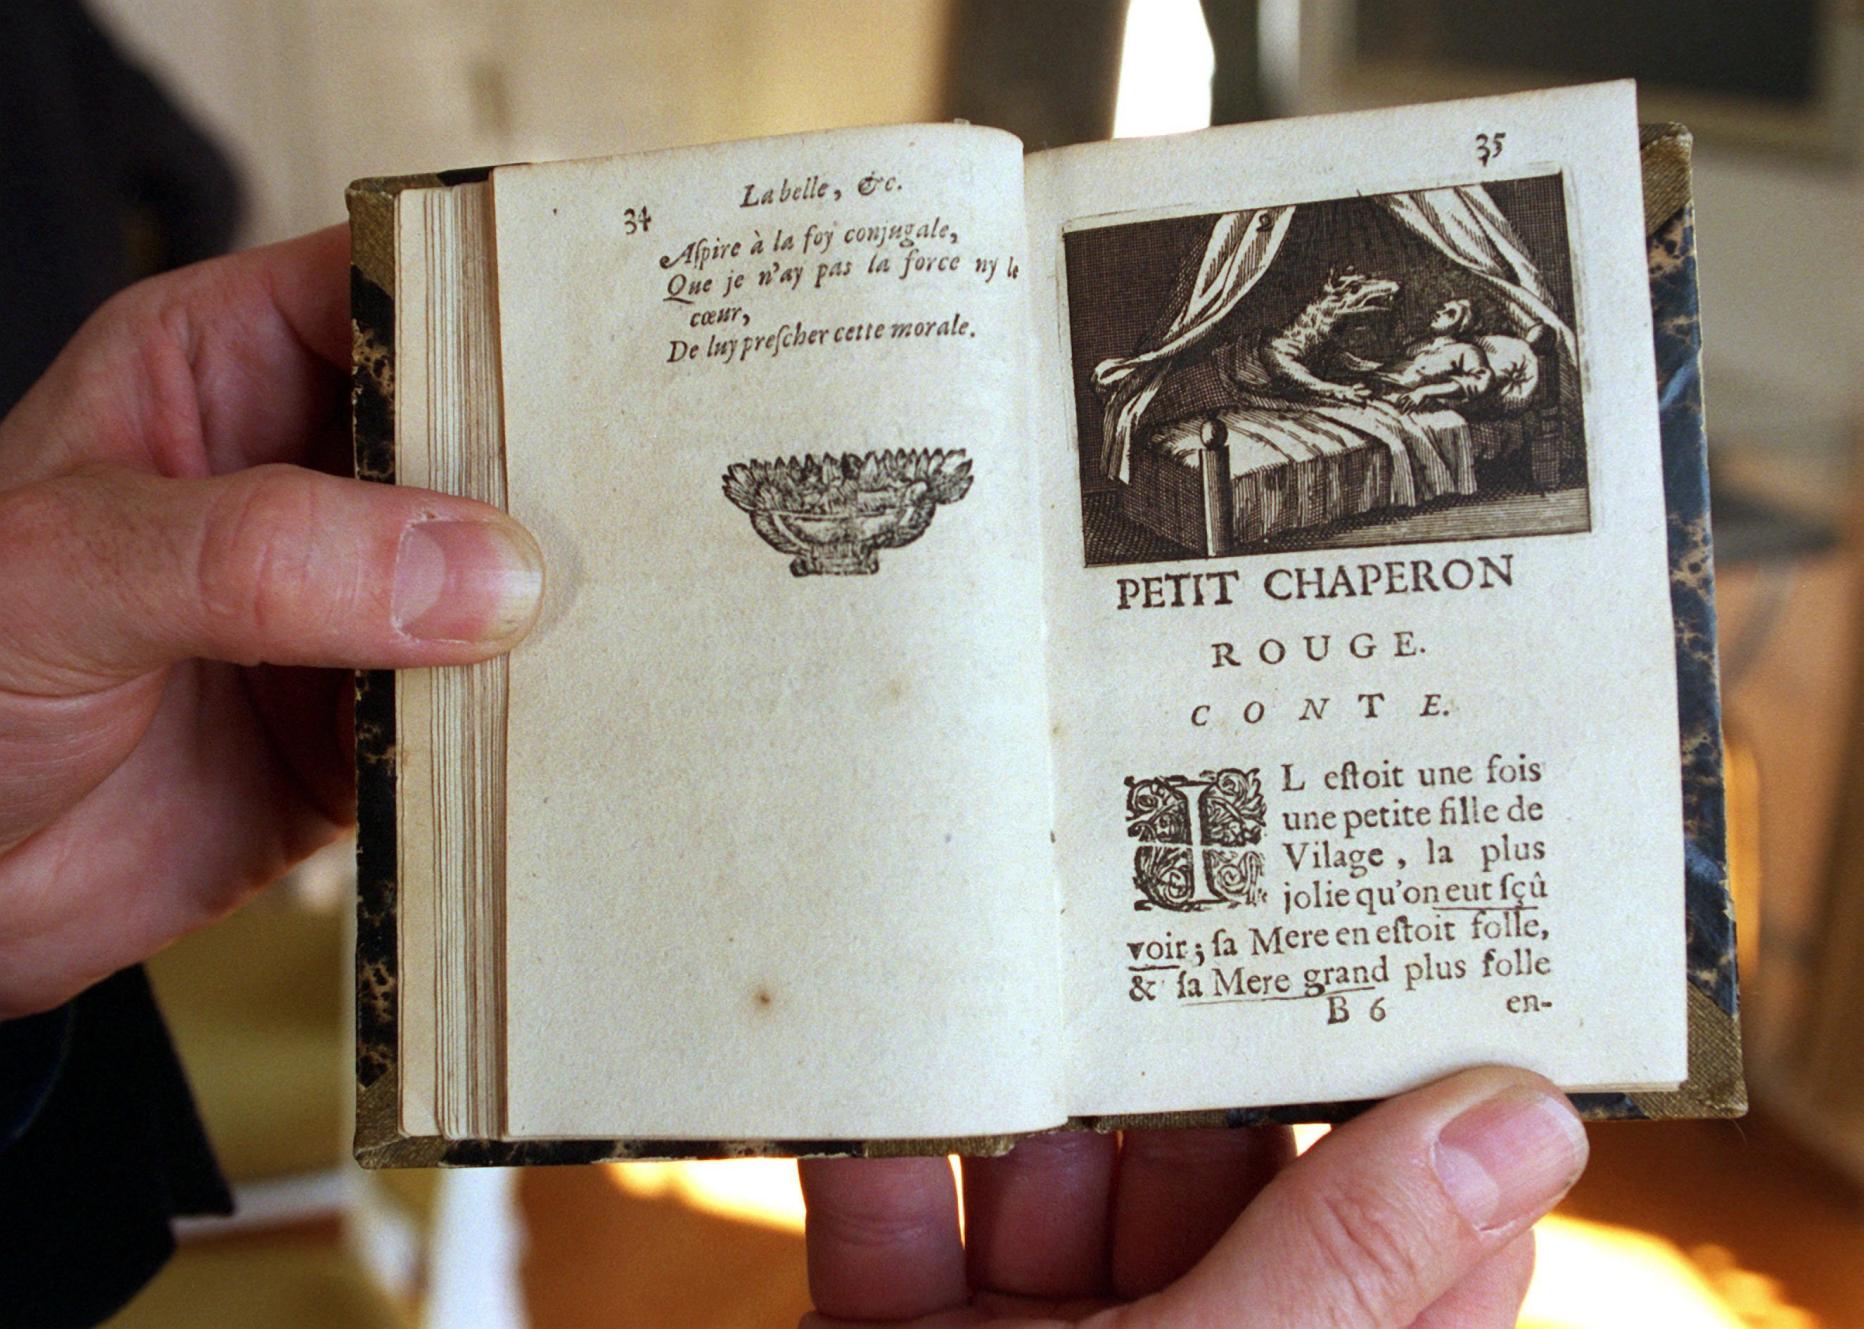 34
La belle, &c.
Aſpire à la foy conjugale,
Que je n'ay pas la force ny le
cœur,
De luy preſcher cette morale.
35
2
PETIT CHAPERON
ROUGE.
CONTE.
IL eſtoit une fois
une petite fille de
Vilage, la plus
jolie qu'on eut ſçû
voir; ſa Mere en eſtoit folle,
& ſa Mere grand plus folle
B 6 en-